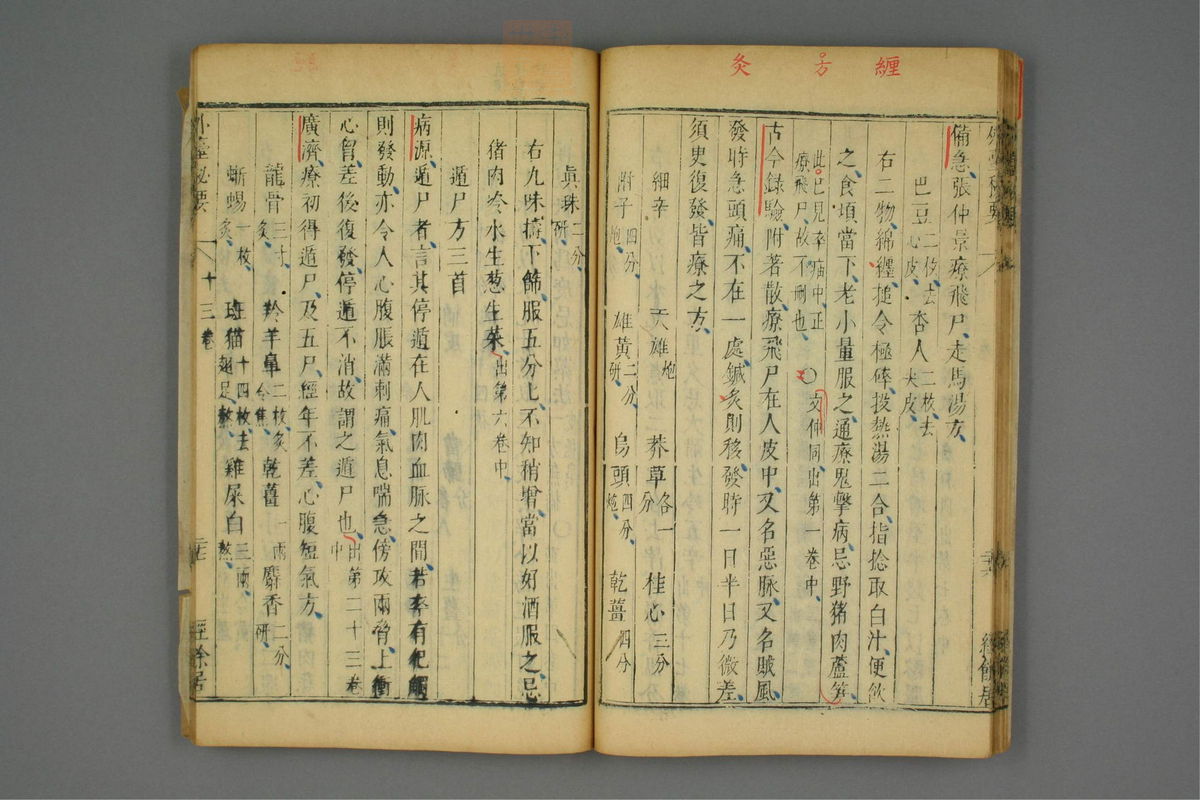 纏 方 灸
備急張仲景療飛尸走馬湯方
巴豆二枚去心皮 杏人二枚去尖皮
右二物綿纏搥令極碎投熱湯二合指捻取白汁便飲
之食頃當下老小量服之通療鬼擊病忌野猪肉蘆笋
此已見卒疝中正療飛尸故不刪也○文仲同出第一卷中
古今錄驗附著散療飛尸在人皮中又名惡脉又名賊風
發時急頭痛不在一處鍼灸則移發時一日半日乃微差
須臾復發皆療之方
細辛 天雄炮 莽草各一分 桂心三分
附子四分炮 雄黃二分研 烏頭四分炮 乾薑四分
眞珠二分研
右九味擣下篩服五分匕不知稍增當以好酒服之忌
猪肉冷水生葱生菜出第六卷中
遁尸方三首
病源遁尸者言其停遁在人肌肉血脉之間若卒有犯觸
則發動亦令人心腹脹滿刺痛氣息喘急傍攻兩脅上衝
心胷差後復發停遁不消故謂之遁尸也出第二十三卷中
廣濟療初得遁尸及五尸經年不差心腹短氣方
龍骨三寸炙 羚羊鼻二枚炙令焦 乾薑一兩 麝香二分研
蜥蜴一枚炙 斑猫十四枚去翅足熬 雞屎白三兩熬
外臺秘要 十三卷 二七 經餘居